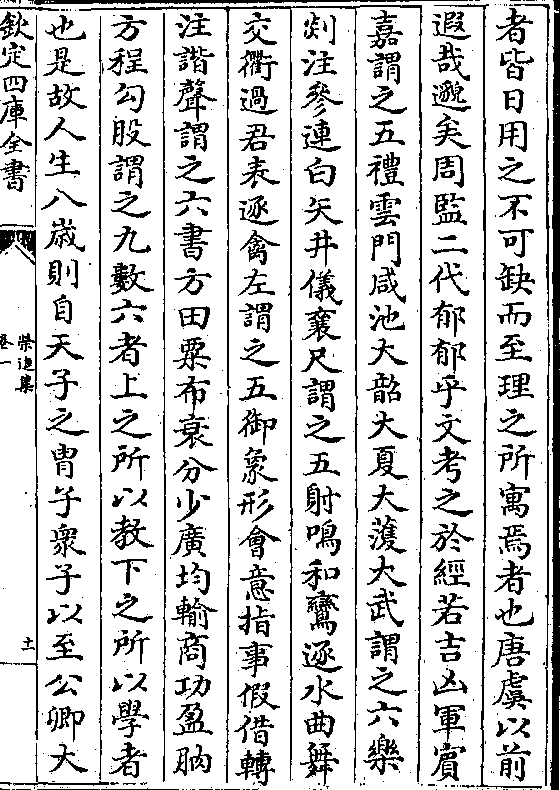 者皆日用之不可缺而至理之所寓焉者也唐虞以前
遐哉邈矣周監二代郁郁乎文考之於經若吉凶軍賓
嘉謂之五禮雲門咸池大韶大夏大濩大武謂之六樂
剡注參連白矢井儀襄尺謂之五射鳴和鸞逐水曲舞
交衢過君表逐禽左謂之五御象形會意指事假借轉
注諧聲謂之六書方田粟布衰分少廣均輸商功盈朒
方程勾股謂之九數六者上之所以教下之所以學者
也是故人生八歲則自天子之胄子衆子以至公卿大
欽定四庫全書
榮進集
卷一
十一